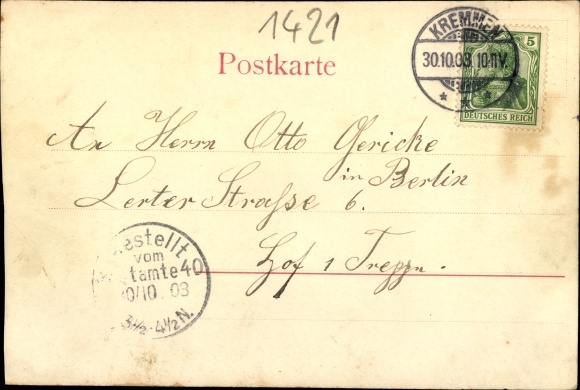 1421
Postkarte
KREMMEN
30.10.03. 10-11V.
5
DEUTSCHES REICH
An Herrn Otto Gericke
in Berlin
Lerter Straße 6.
Hof 1 Treppn.
Bestellt
vom
Postamte 40
30/10. 03
3½-4½N.